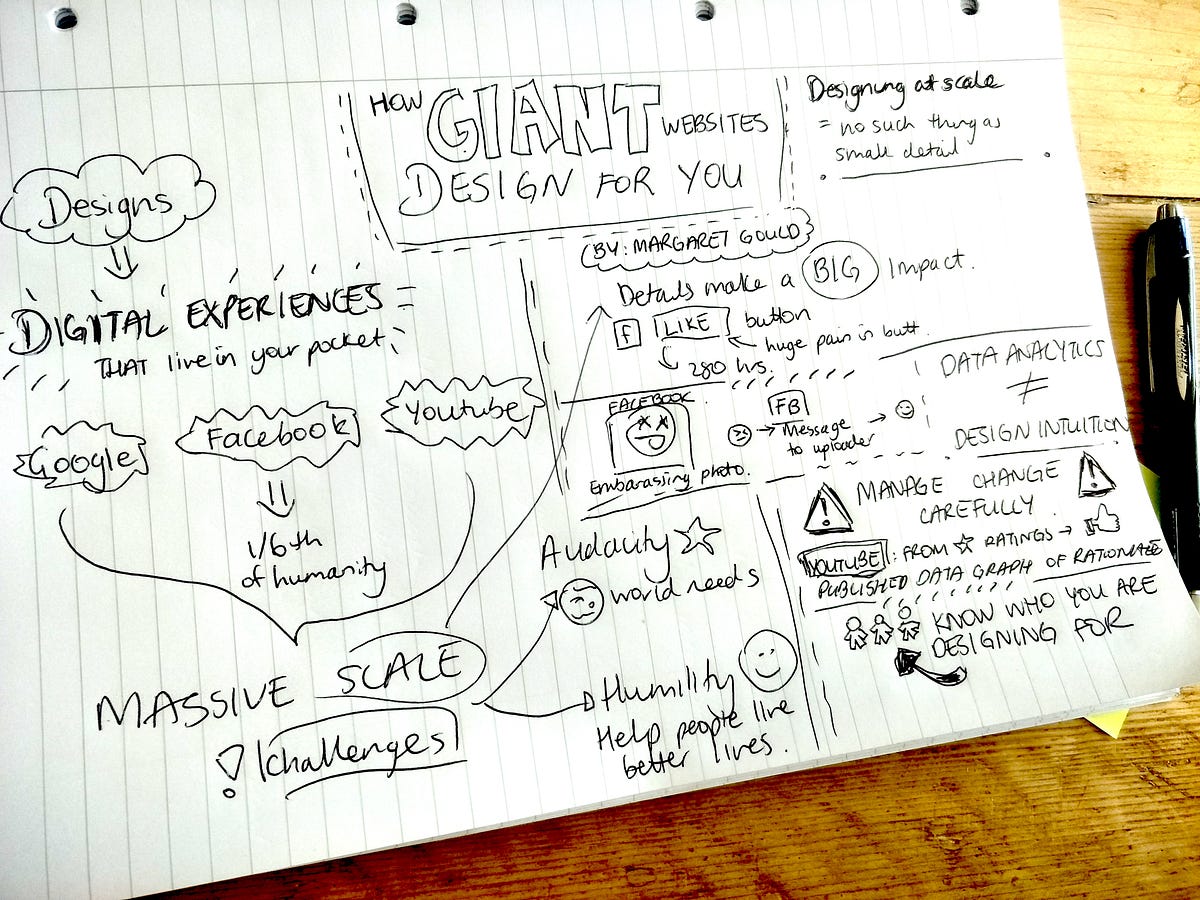 HOW GIANT WEBSITES
DESIGN FOR YOU
(BY: MARGARET GOULD)
Designs
DIGITAL EXPERIENCES
THAT live in your pocket
Google
Facebook
Youtube
1/6th
of humanity
MASSIVE SCALE
! challenges
Designing at scale
= no such thing as
small detail
Details make a BIG Impact.
f LIKE button
huge pain in butt.
280 hrs.
FACEBOOK
Embarassing photo.
FB
Message
to uploader
Audacity
world needs
Humility
Help people live
better lives.
DATA ANALYTICS
≠
DESIGN INTUITION
MANAGE CHANGE
CAREFULLY
YOUTUBE: FROM ☆ RATINGS →
PUBLISHED DATA GRAPH OF
KNOW WHO YOU ARE
DESIGNING FOR